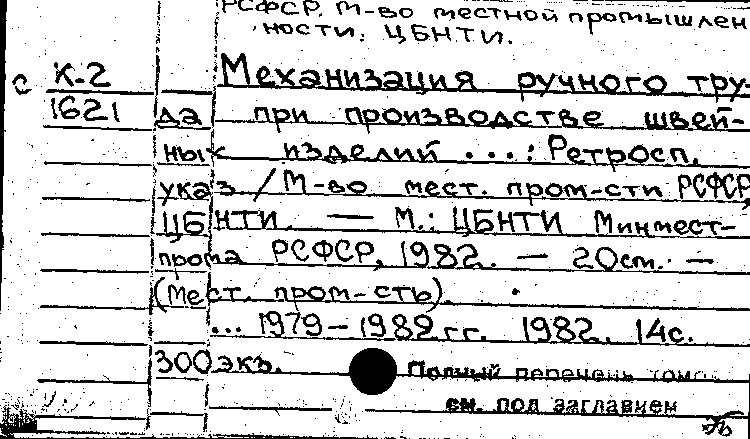 РСФСР. М-во местной промышлен
ности. ЦБНТИ.
с К-2 Механизация ручного тру-
1621 да при производстве швей-
ных изделий ...: Ретросп.
указ / М-во мест. пром-сти РСФСР,
ЦБНТИ. — М.: ЦБНТИ Минмест-
прома РСФСР, 1982. — 20см. —
(Мест. пром-сть).
... 1979-1982гг. 1982. 14с.
300экз.
Полный перечень томов
см. под заглавием